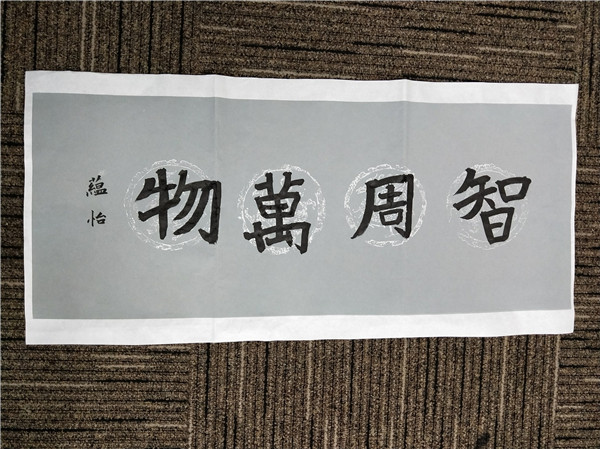 智周萬物
蘊怡